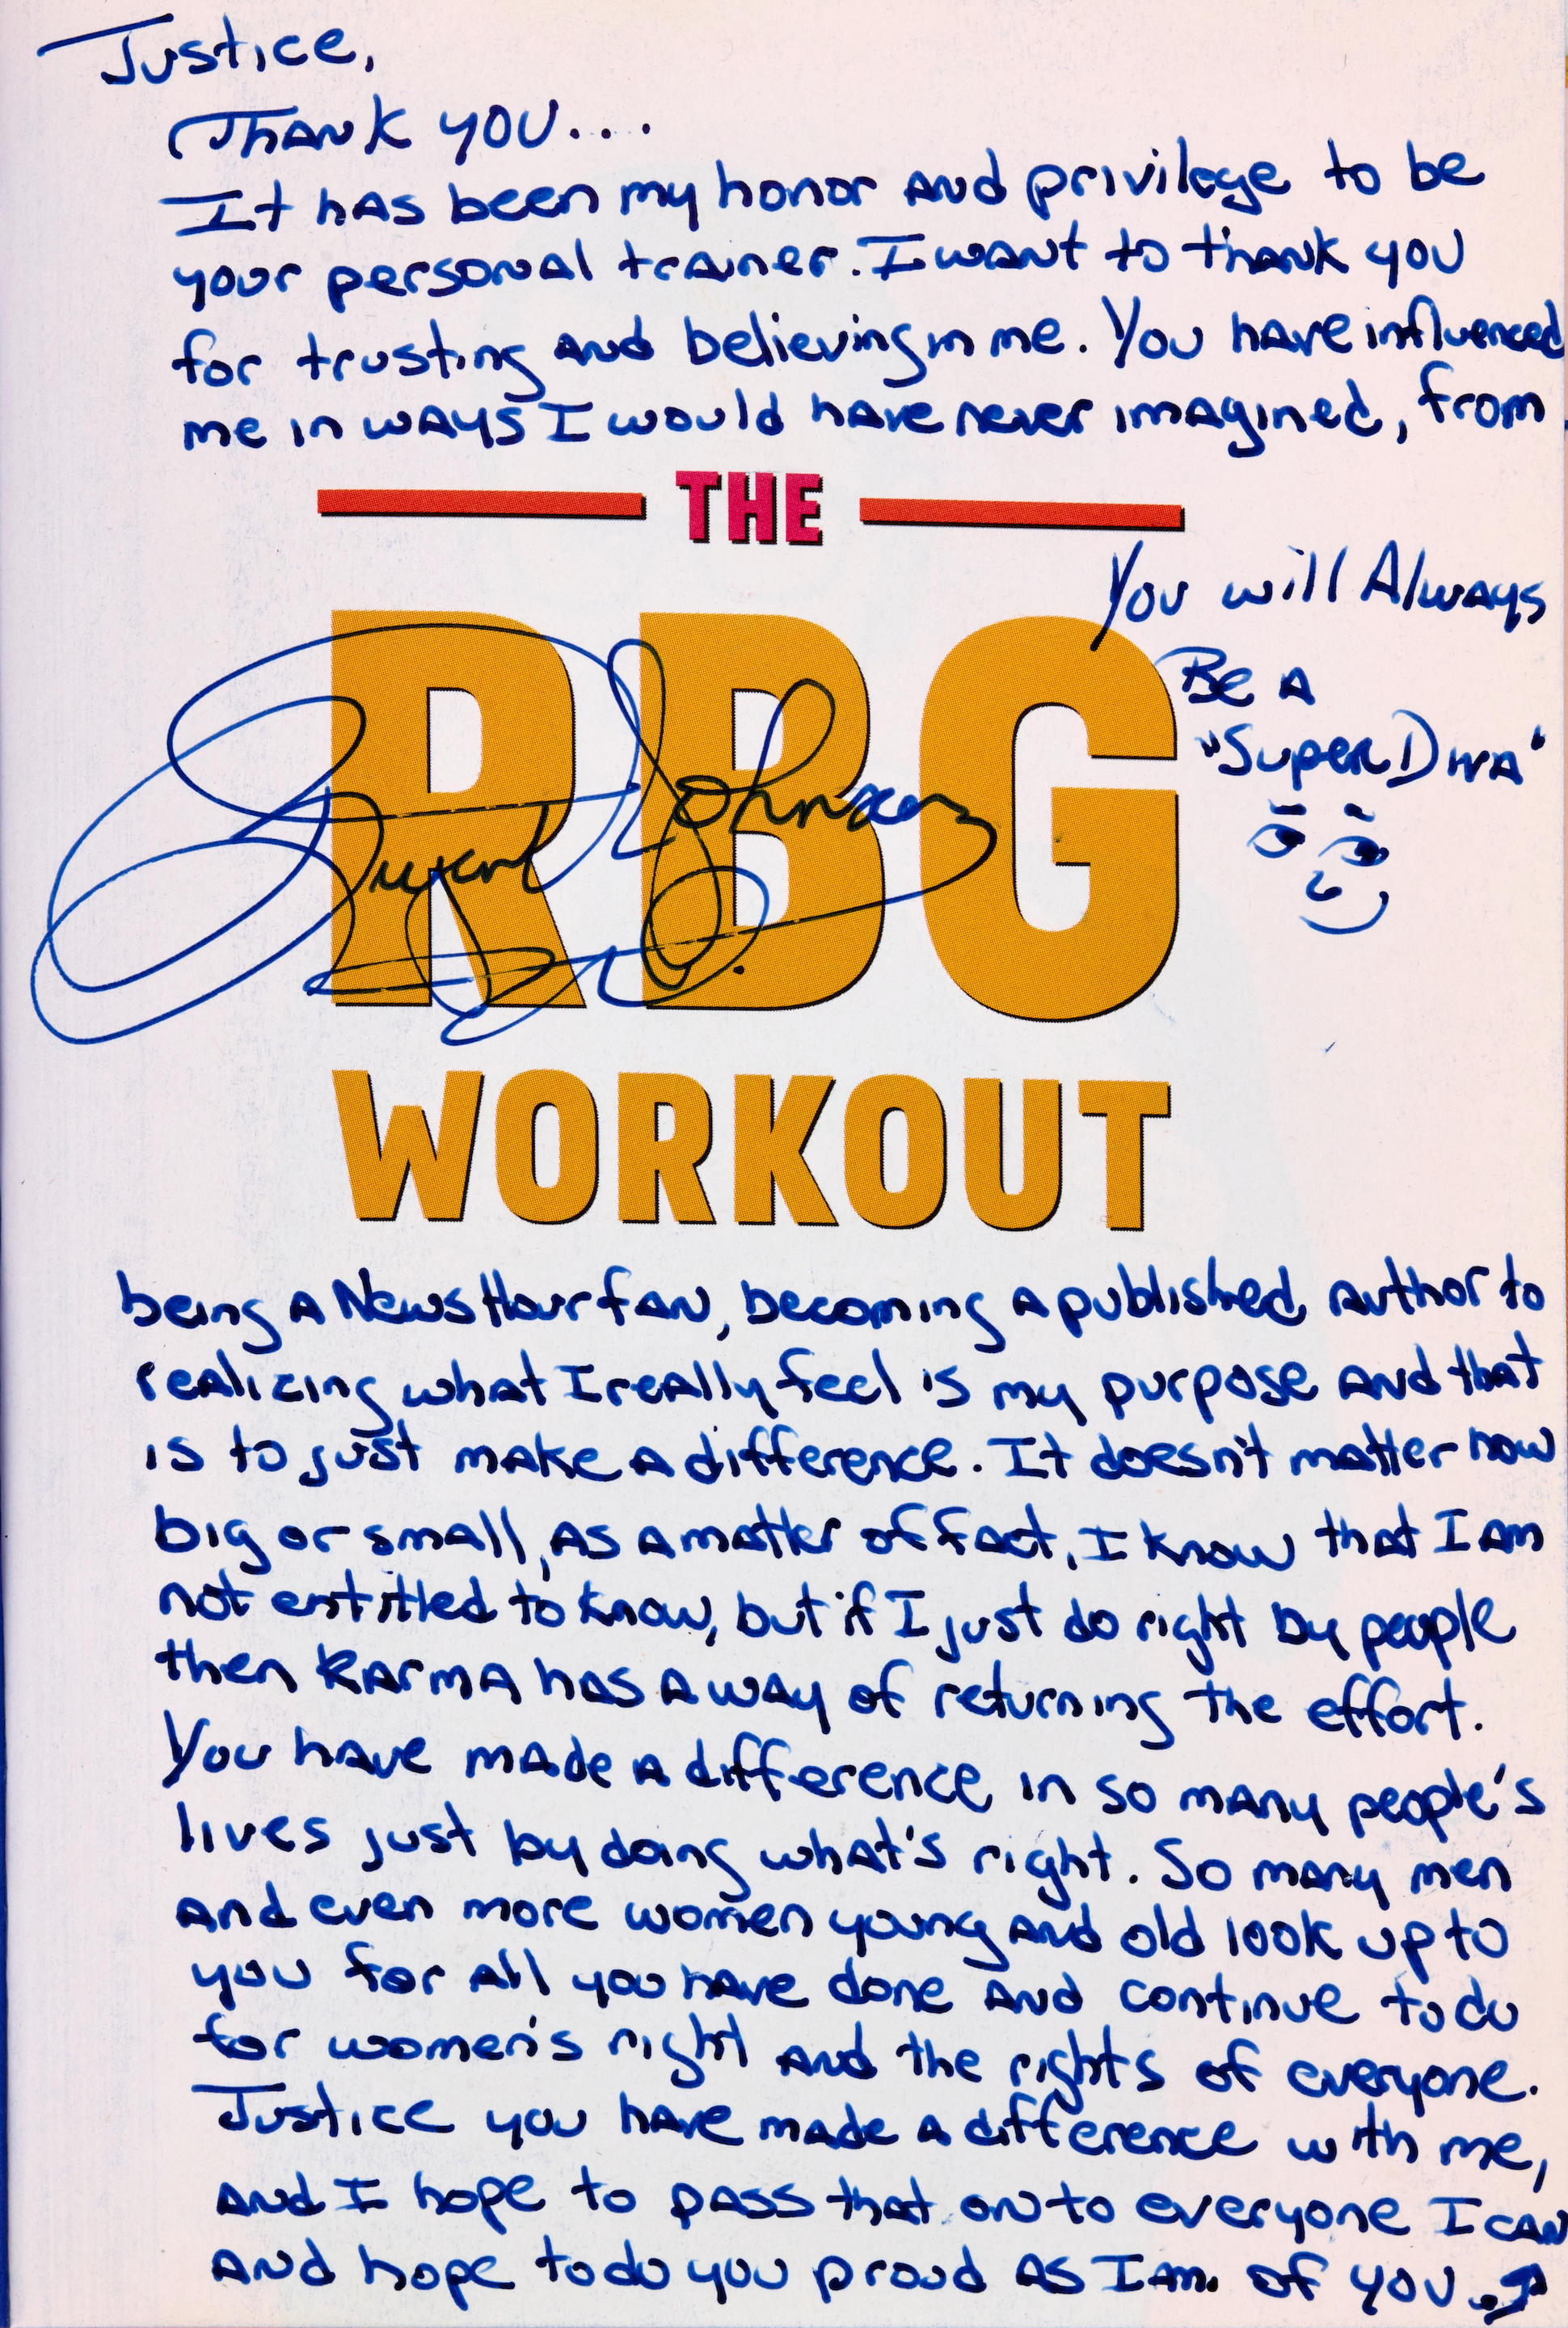 Justice,
Thank you....
It has been my honor and privilege to be
your personal trainer. I want to thank you
for trusting and believing in me. You have influenced
me in ways I would have never imagined, from
THE
You will Always
Be A
"Super Diva"
RBG
Johnson
WORKOUT
being a NewsHour fan, becoming a published author to
realizing what I really feel is my purpose and that
is to just make a difference. It doesn't matter how
big or small, as a matter of fact, I know that I am
not entitled to know, but if I just do right by people
then karma has a way of returning the effort.
You have made a difference in so many people's
lives just by doing what's right. So many men
and even more women young and old look up to
you for all you have done and continue to do
for women's right and the rights of everyone.
Justice you have made a difference with me,
and I hope to pass that on to everyone I can
and hope to do you proud as I am. of you.